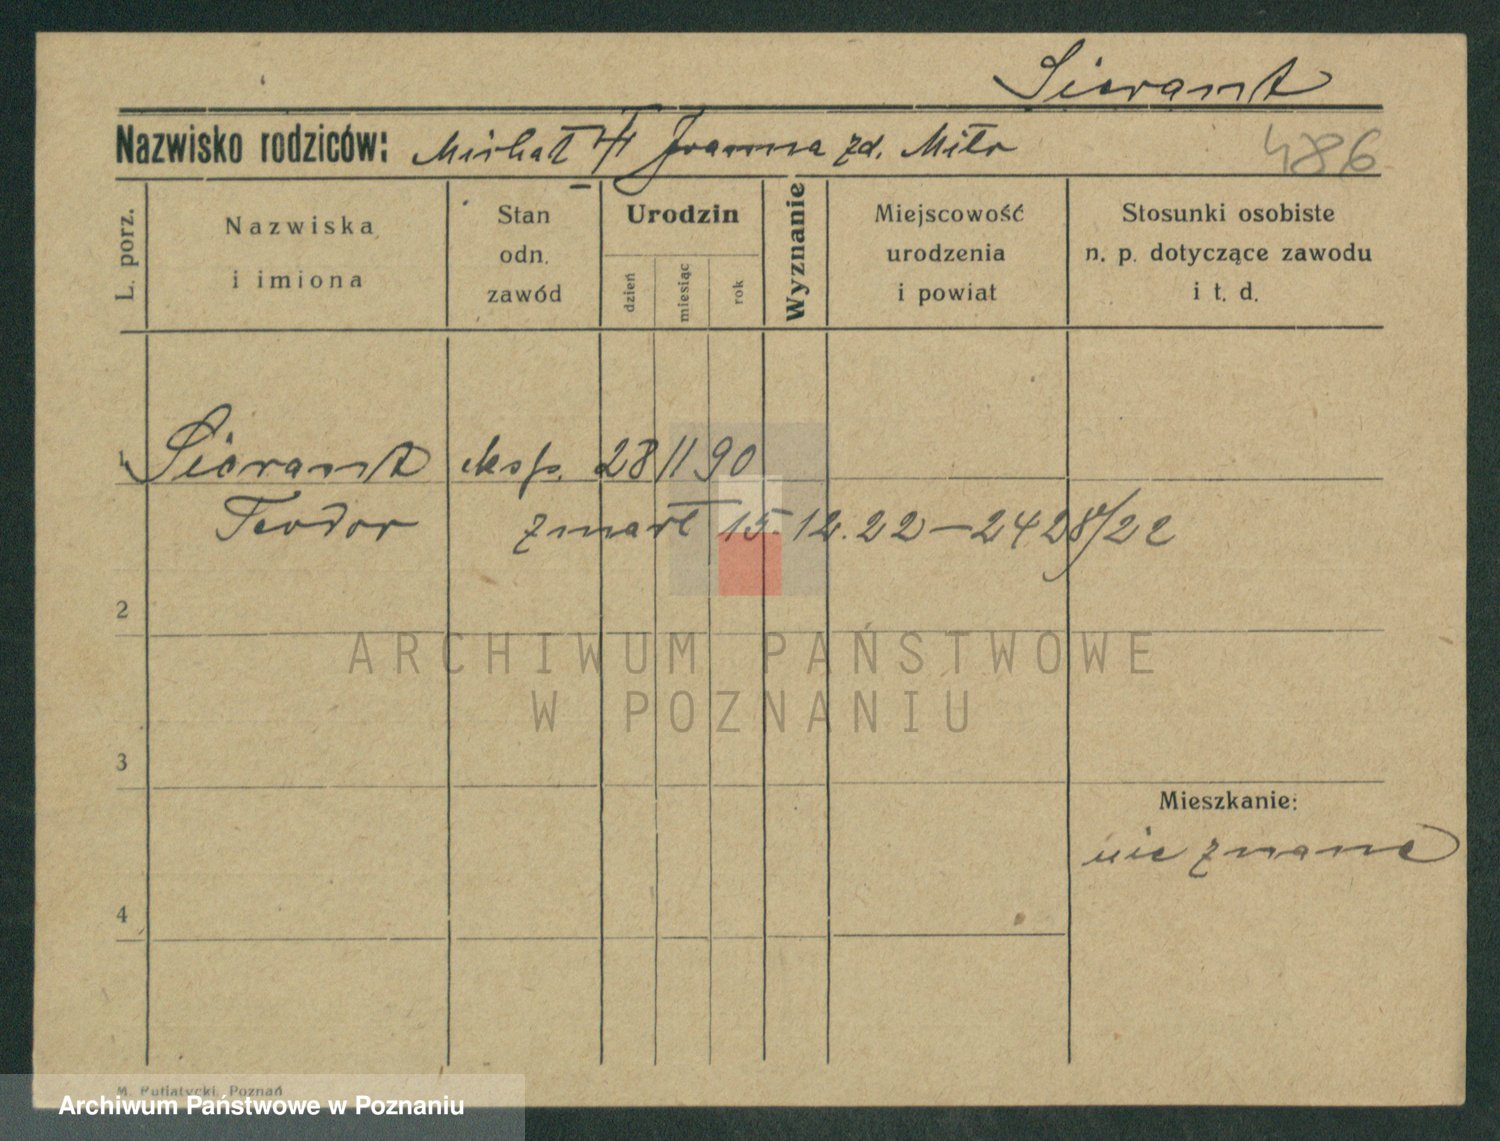 Sierant
Nazwisko rodziców: Michał Joanna zd. Miłr
486
L. porz.
Nazwiska i imiona
Stan odn. zawód
Urodzin
dzień
miesiąc
rok
Wyznanie
Miejscowość urodzenia i powiat
Stosunki osobiste n. p. dotyczące zawodu i t. d.
1 Sierant 28 11 90
Teodor zmarł 15.12.22 — 2428/22
2
3
Mieszkanie:
nie znane
4
M. Putiatycki, Poznań
ARCHIWUM PAŃSTWOWE
W POZNANIU
Archiwum Państwowe w Poznaniu